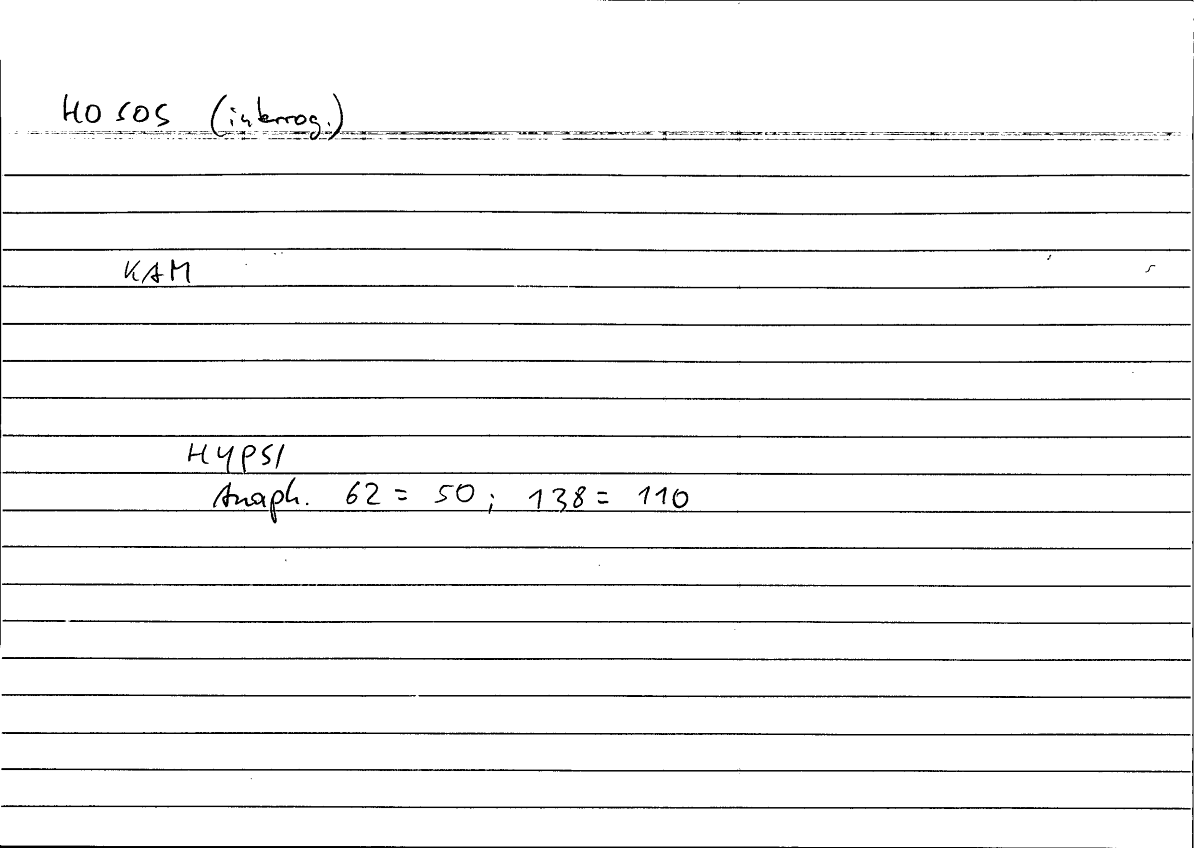 HOSOS (interrog.)
KAM
HYPSI
Anaph. 62 = 50; 138 = 110